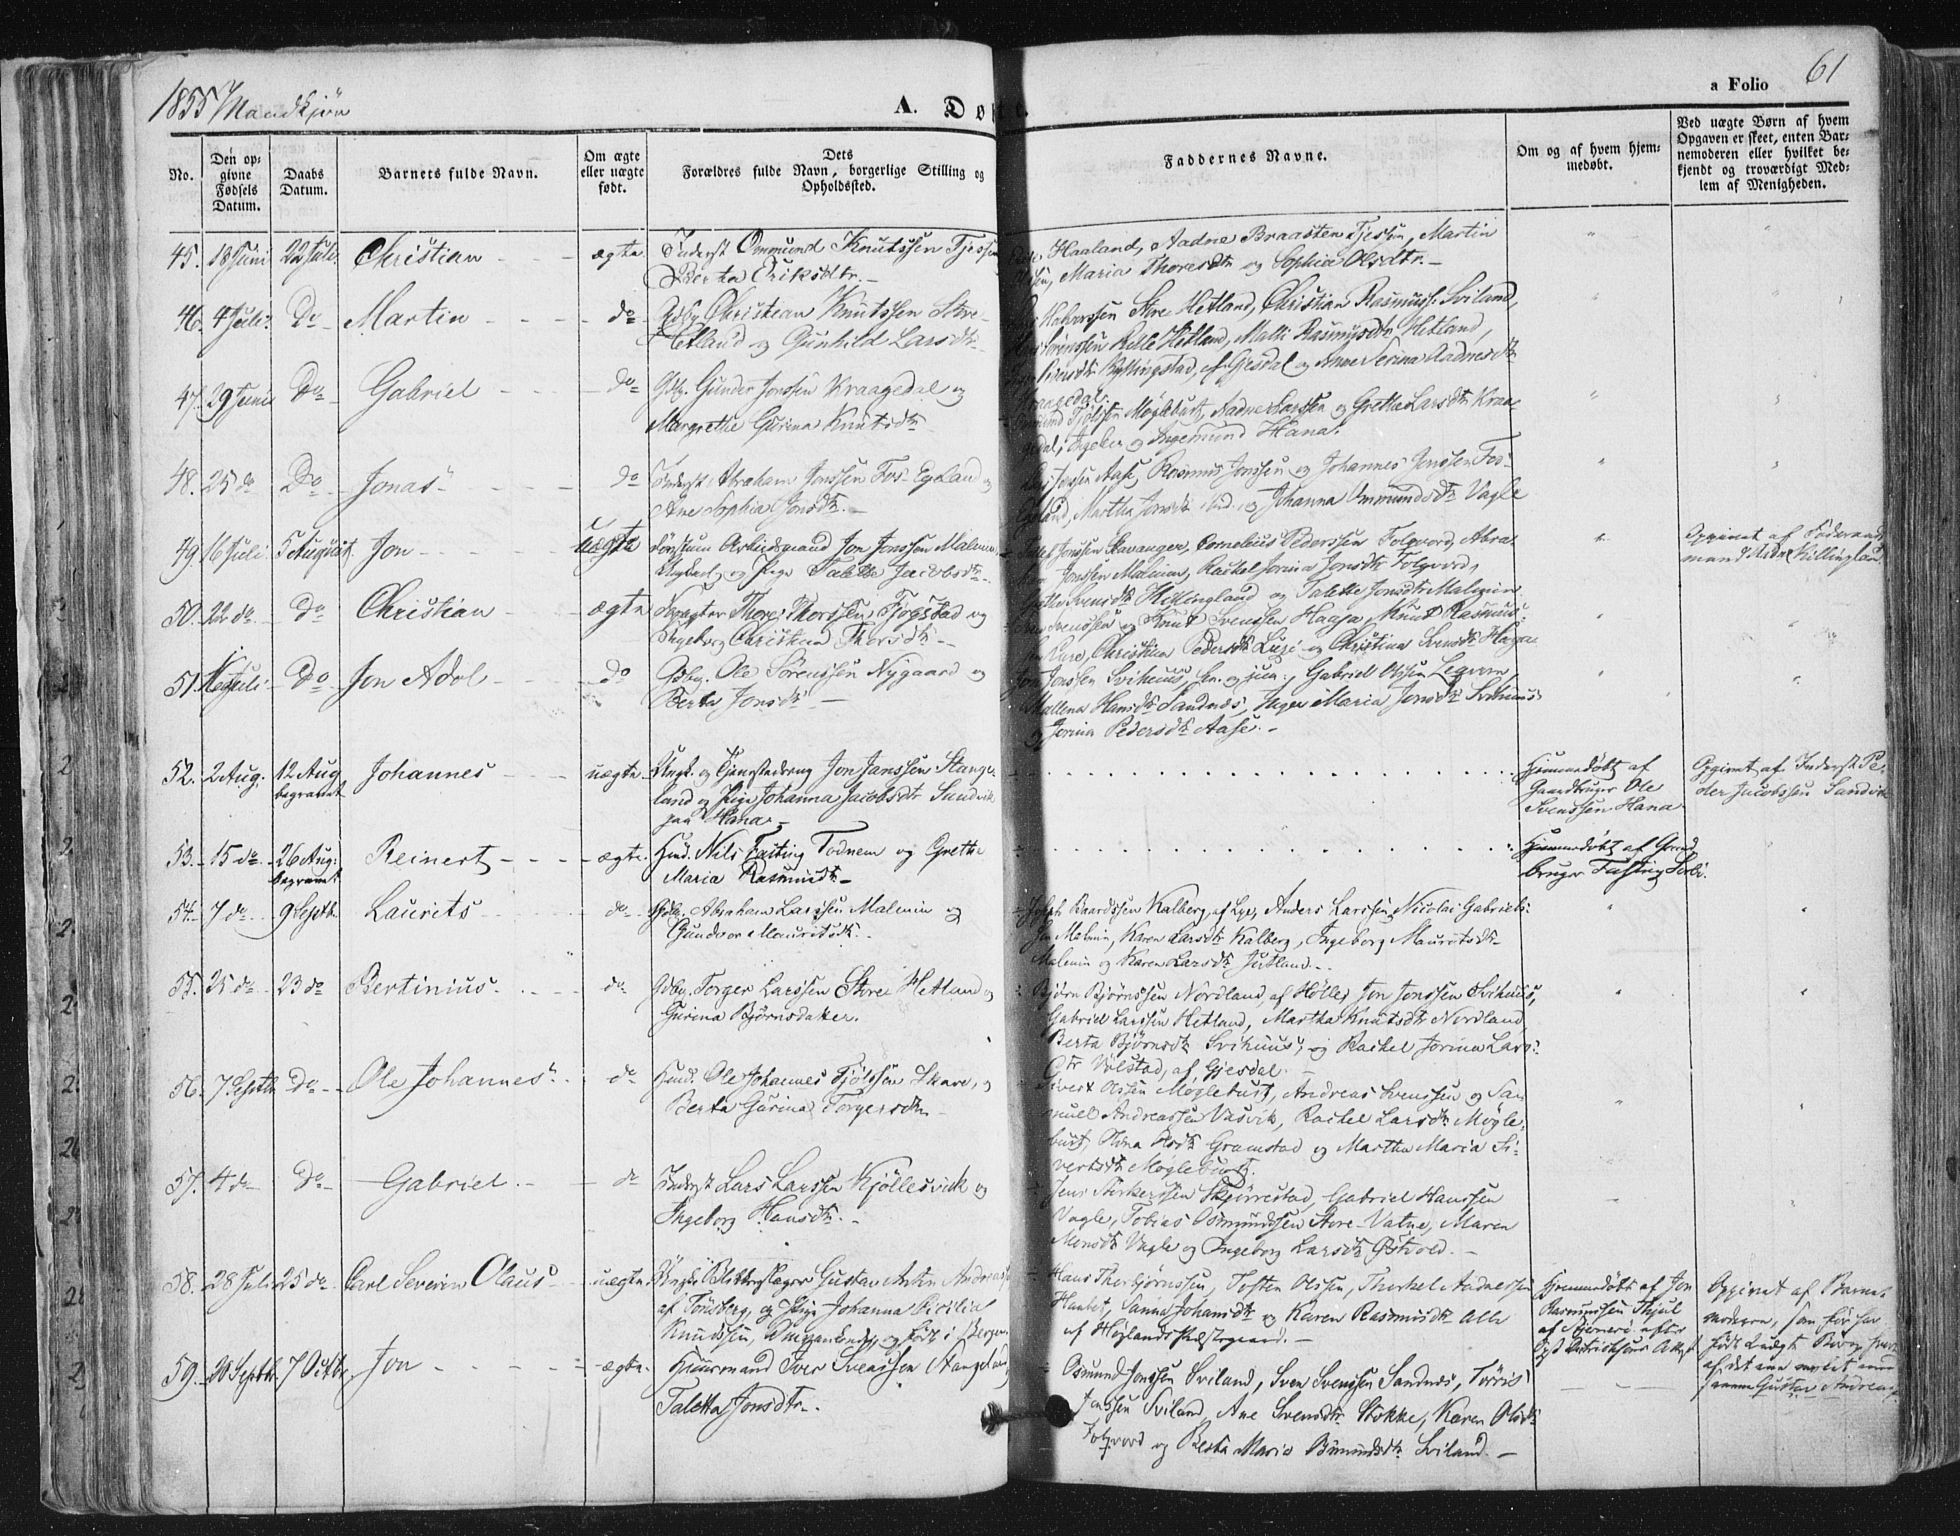 1855 Mandkjøn
A. Døbte.
a Folio 61
No.
Den opgivne Fødsels Datum.
Daabs Datum.
Barnets fulde Navn.
Om ægte eller uægte født.
Dets Forældres fulde Navn, borgerlige Stilling og Opholdsted.
Faddernes Navne.
Om og af hvem hjemmedøbt.
Ved uægte Børn af hvem Opgaven er skeet, enten Barnemoderen eller hvilket bekjendt og troværdigt Medlem af Menigheden.
45. 18 Juni 22 Juli Christian ægte Inderst Ommund Knutssen Tjessem
Berta Eriksdtr.
Haaland, Aadne Braasten Tjessem, Martin
Maria Thoresdtr og Sophia Olsdtr.
46. 4 Juli Do Martin do Gdbg. Christian Knutssen Store
Hetland og Gunhild Larsdtr
Halvorssen Store Hetland, Christian Rasmuss. Sviland,
Sørenssen Lille Hetland, Malli Rasmusdtr Hetland,
Bybllingstad, af Gjesdal og Ane Serina Aadnesdtr
47. 29 Juni Do Gabriel do Gdbg. Gunder Jonssen Kraagedal og
Margrethe Gurina Knutsdtr
Kraagedal.
Møglebust, Aadne Larssen og Gretha Larsdtr Kraa-
gedal, Ingeb. og Ingemund Hana.
48. 25 do Do Jonas do Inderst Abraham Jonssen Fos-Egeland og
Ane Sophia Jonsdtr.
Aase, Rasmus Jonssen og Johannes Jonssen Fos-
Egeland, Martha Jonsdtr ibid. og Johanna Ommundsdtr Vagle
49. 16 Juli 5 August Jon uægte Arbeidsmand Jon Jonssen Malmin
Ungkarl og Pige Talette Jacobsdtr
Jonssen Stavanger, Cornelius Pederssen Folqvord, Abra-
ham Jonssen Malmin, Rachel Jorina Jonsdtr Folqvord,
Svensdtr Hillingland og Talette Jonsdtr Malmin
Opgivet af Føderaads
mand
50. 22 do Do Christian ægte Forpagter Thore Thorssen Fjogstad og
Ingeborg Christina Thorsdtr
Svenssen og Knut Svenssen Haga, Knut Rasmus-
sen Lure, Christina Pedersdtr Luze og Christina Svensdtr Haga
51. Juli Do Jon Adol do Gdbg. Ole Sørenssen Nygaard og
Berta Jonsdtr
Jon Jonssen Svihuus, sen. og jun., Gabriel Olssen Leqvom,
Mallena Hansdtr Sandnes, Inger Maria Jonsdtr Svihuus
og Jorina Pedersdtr Aase.
52. 2 Aug. 12 Aug. begravet Johannes uægte Ungk. og Tjenestedreng Jon Janssen Stange-
land og Pige Johanna Jacobsdtr Sandvik
paa Hana
Hjemmedøbt af
Gaardbruger Ole
Svenssen Hana
Opgivet af Inderst Pe-
der Jacobssen Sandvik
53. 15 do 26 Aug. begravet Reinert ægte Hmd. Nils Tasting Todnem og Grethe
Maria Rasmusdtr
Hjemmedøbt af Gaard
bruger Tasting
54. 7 do 9 Septb. Laurits do Gdbg. Abraham Larssen Malmin og
Gundvor Mauritsdtr.
Joseph Baardssen Kalberg, af Lye, Anders Larssen, Nicolai Gabriels-
sen Malmin, Karen Larsdtr Kalberg, Ingeborg Mauritsdtr
Malmin og Karen Larsdtr Jutland.
55. 25 do 23 do Bertinius do Gdbg. Torger Larssen Store Hetland og
Gurina Bjørnsdatter.
Bjørn Bjørnssen Nordland, af Hølle, Jon Jonssen Svihuus,
Gabriel Larssen Hetland, Martha Knutsdtr Nordland,
Berta Bjørnsdtr Svihuus, og Rachel Jorina Lars-
dtr Ølestad, af Gjesdal.
56. 7 Septb. Do Ole Johannes do Hmd. Ole Johannes Tjølssen Skare, og
Berta Gurina Torgersdtr
Sivert Olssen Møglebust, Andreas Svenssen og Sa-
muel Andreassen Vasvik, Rachel Larsdtr Møgle-
bust, Olsdtr Gramstad og Martha Maria Si-
vertsdtr Møglebust.
57. 4 do Do Gabriel do Inderst Lars Larssen Kjøllesvik og
Ingeborg Hansdtr.
Jens Skjørrestad, Gabriel Hanssen
Vagle, Tobias Osmundssen Aore-Vatne, Maren
Monsdtr Vagle og Ingeborg Larsdtr Østvold.
58. 28 Juli 25 do Carl Severin Olaus uægte Ungk. Blikkenslager Gustav Anton Andreassen
af Tønsberg, og Pige Johanna Cicilia
Knudssen, og født i Bergen.
Hans Thorbjørnssen, Tosten Olssen, Thorkel Aadnessen
Haabet, Sanna Johansdtr og Karen Rasmusdtr alle
af Høylands Præstegaard.
Hjemmedøbt af Jon
Rasmussen
af
Opgivet af Barne-
moderen, som før har
født
af det
samme Gustav Andreas
59. 20 Septb. 7 Octbr. Jon ægte. Huusmand Iver Svenssen Stangeland
Taletta Jonsdtr.
Osmund Jonssen Sviland, Sven Svenssen Sandnes, Tørris
Jonssen Sviland, Ane Svensdtr Stokke, Karen Olsdtr
Folqvord og Berta Maria Omundsdtr Sviland.